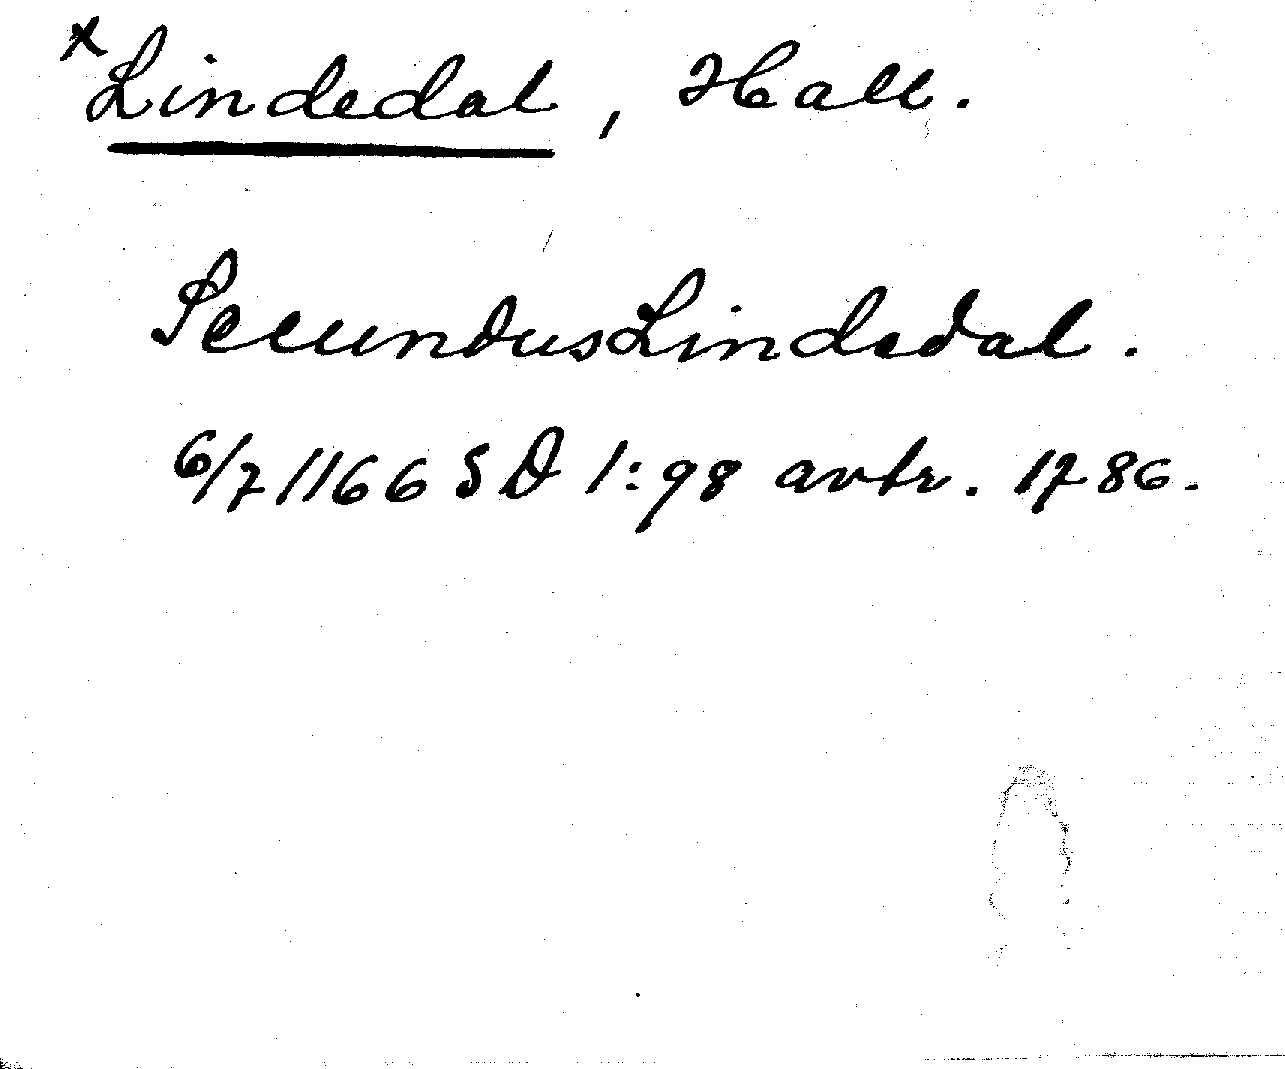 x Lindedal, Hall.
Secundus Lindedal.
6/7 1166 SD 1:98 avtr. 1786.